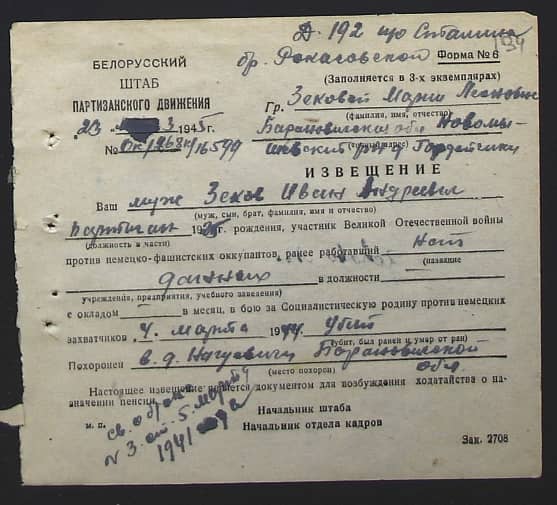 Д. 192 им Сталина
194
бр. Рокасовской Форма № 6
БЕЛОРУССКИЙ
ШТАБ
ПАРТИЗАНСКОГО ДВИЖЕНИЯ
(Заполняется в 3-х экземплярах)
Гр. Зековой Марии
(фамилия, имя, отчество)
„23 3 1945г.
Барановичская обл Новомы-
№ 16599
шский р-н д Гордейчики
ИЗВЕЩЕНИЕ
Ваш муж Зеков Иван Андреевич
(муж, сын, брат, фамилия, имя и отчество)
партизан 19 г. рождения, участник Великой Отечественной войны
(должность в части)
против немецко-фашистских оккупантов, ранее работавший нет
(название
данных в должности
учреждения, предприятия, учебного заведения)
с окладом в месяц, в бою за Социалистическую родину против немецких
захватчиков 4 марта 1944. убит
(убит, был ранен и умер от ран)
Похоронен в. д. Нагуевичи Барановичской
(место похорон) обл.
Настоящее извещение является документом для возбуждения ходатайства о на-
значении пенсии.
м. п.
св. о браке
№ 3 от 5. марта
1941 года
Начальник штаба
Начальник отдела кадров
Зак. 2708